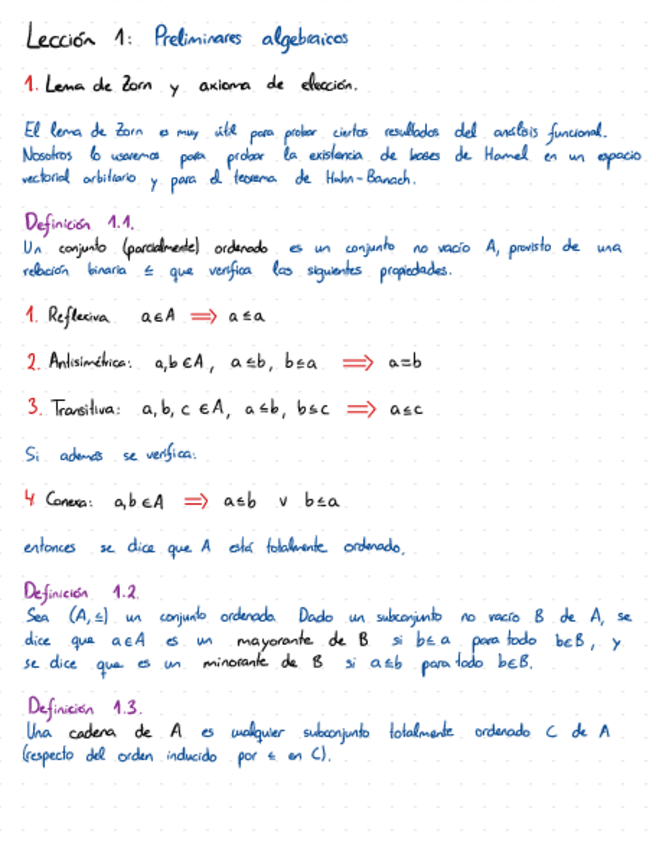 Lección 1: Preliminares algebraicos
1. Lema de Zorn y axioma de elección.
El lema de Zorn es muy útil para probar ciertos resultados del análisis funcional.
Nosotros lo usaremos para probar la existencia de bases de Hamel en un espacio
vectorial arbitrario y para el teorema de Hahn-Banach.
Definición 1.1.
Un conjunto (parcialmente) ordenado es un conjunto no vacío A, provisto de una
relación binaria ≤ que verifica las siguientes propiedades.
1. Reflexiva a∈A ⟹ a≤a
2. Antisimétrica: a,b∈A, a≤b, b≤a ⟹ a=b
3. Transitiva: a, b, c ∈A, a≤b, b≤c ⟹ a≤c
Si además se verifica:
4 Conexa: a,b∈A ⟹ a≤b ∨ b≤a
entonces se dice que A está totalmente ordenado.
Definición 1.2.
Sea (A, ≤) un conjunto ordenado. Dado un subconjunto no vacío B de A, se
dice que a∈A es un mayorante de B si b≤a para todo b∈B, y
se dice que es un minorante de B si a≤b para todo b∈B.
Definición 1.3.
Una cadena de A es cualquier subconjunto totalmente ordenado C de A
(respecto del orden inducido por ≤ en C).